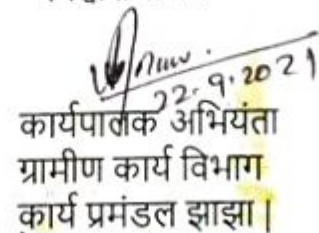 22.9.2021
कार्यपालक अभियंता
ग्रामीण कार्य विभाग
कार्य प्रमंडल झाझा |